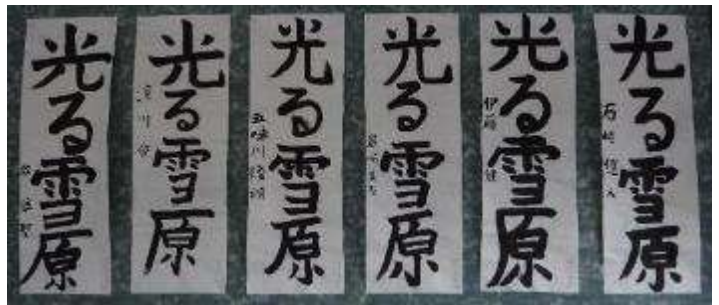 光る雪原
光る雪原
光る雪原
光る雪原
伊藤 健
光る雪原
石崎
光る雪原